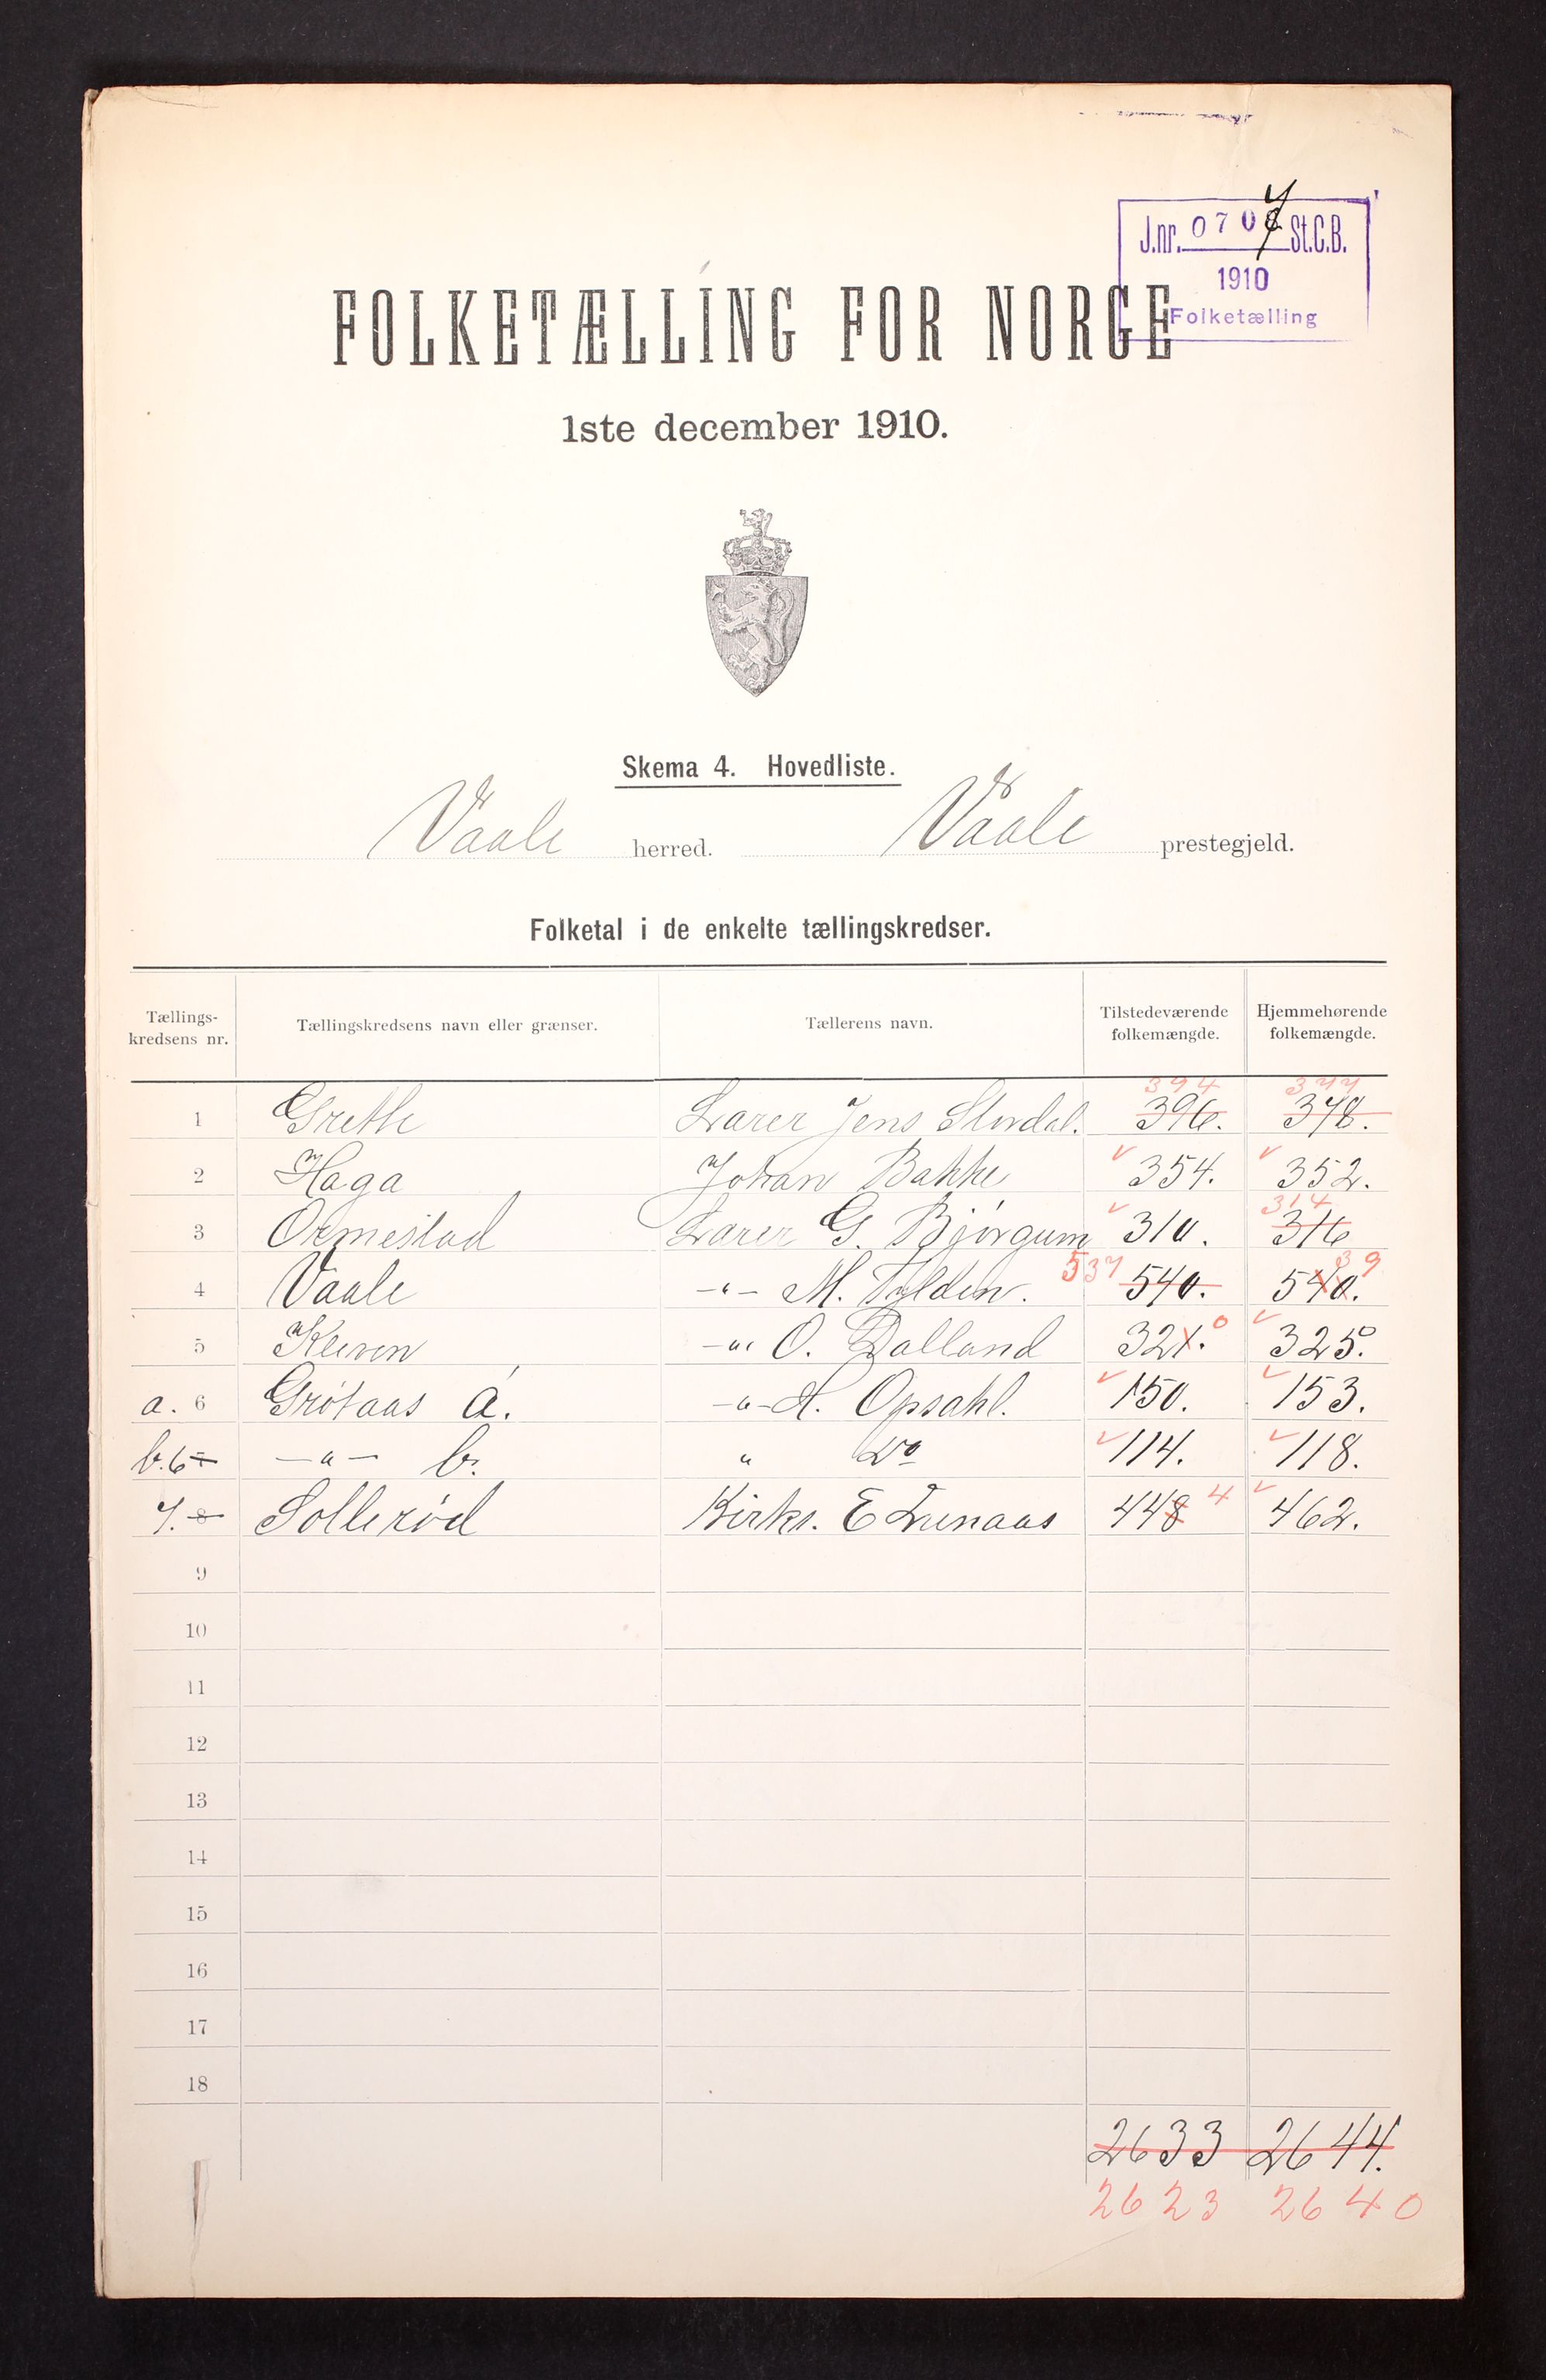 J.nr. 0707 St.C.B.
1910
Folketælling
FOLKETÆLLING FOR NORGE
1ste december 1910.
Skema 4. Hovedliste.
Vaale herred. Vaale prestegjeld.
Folketal i de enkelte tællingskredser.
Tællings-kredsens nr. Tællingskredsens navn eller grænser. Tællerens navn. Tilstedeværende folkemængde. Hjemmehørende folkemængde.
394 377
1 Grette Lærer Jens 396. 378.
2 Haga Johan Bakke 354. 352.
314
3 Ormestad Lærer G. Bjørgum 310. 316
537 39
4 Vaale -"- M. 540. 540.
5 Kleven -"- O. Dalland 321. 0 325.
a. 6 Grøtaas a. -"- H. Opsahl. 150. 153.
b. 6 7 -"- b. " Do 114. 118.
7. 8 Sollerød Kirks. E Lunaas 448 4 462.
9
10
11
12
13
14
15
16
17
18
2633 2644.
2623 2640